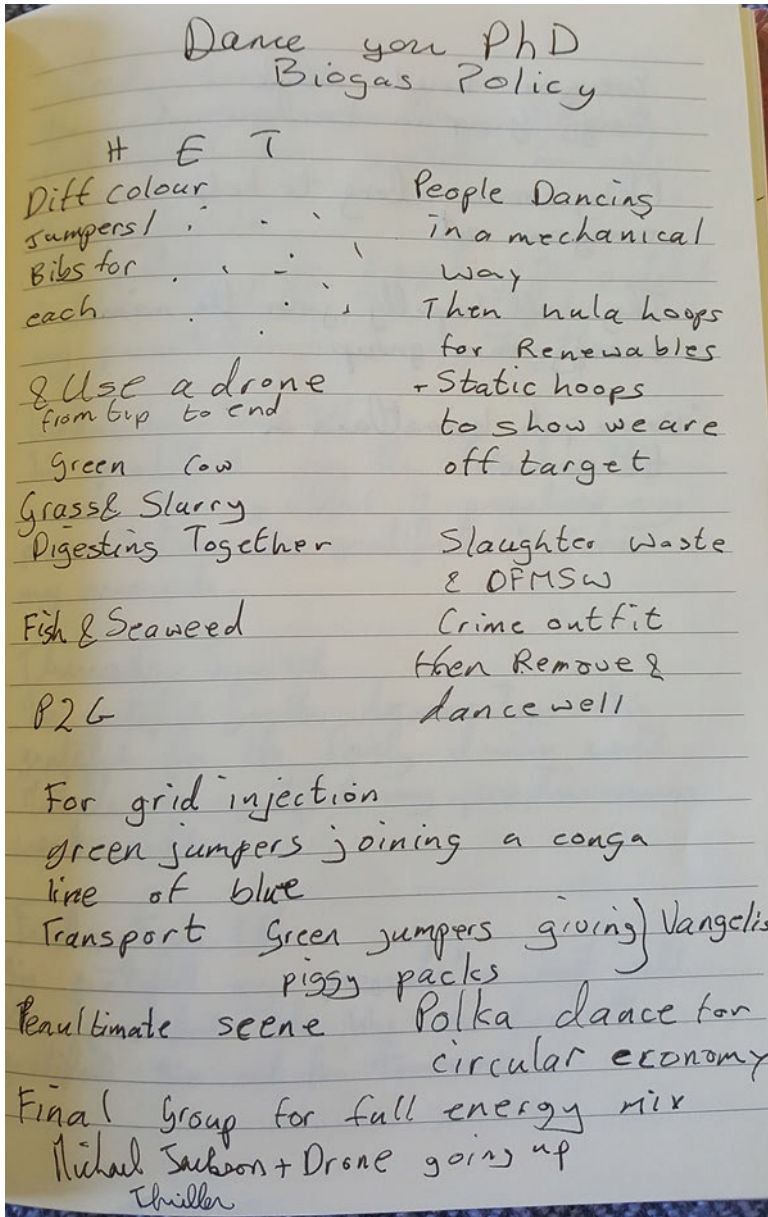 Dance you PhD
Biogas Policy
H E T
Diff colour
Jumpers/
Bibs for
each
& Use a drone
from top to end
Green Cow
Grass & Slurry
Digesting Together
Fish & Seaweed
P2G
People Dancing
in a mechanical
way
Then hula hoops
for Renewables
+ Static hoops
to show we are
off target
Slaughter Waste
& OFMSW
Crime outfit
then Remove &
dance well
For grid injection
green jumpers joining a conga
line of blue
Transport Green jumpers giving } Vangelis
piggy packs
Penultimate scene Polka dance for
circular economy
Final Group for full energy mix
Michael Jackson + Drone going up
Thriller